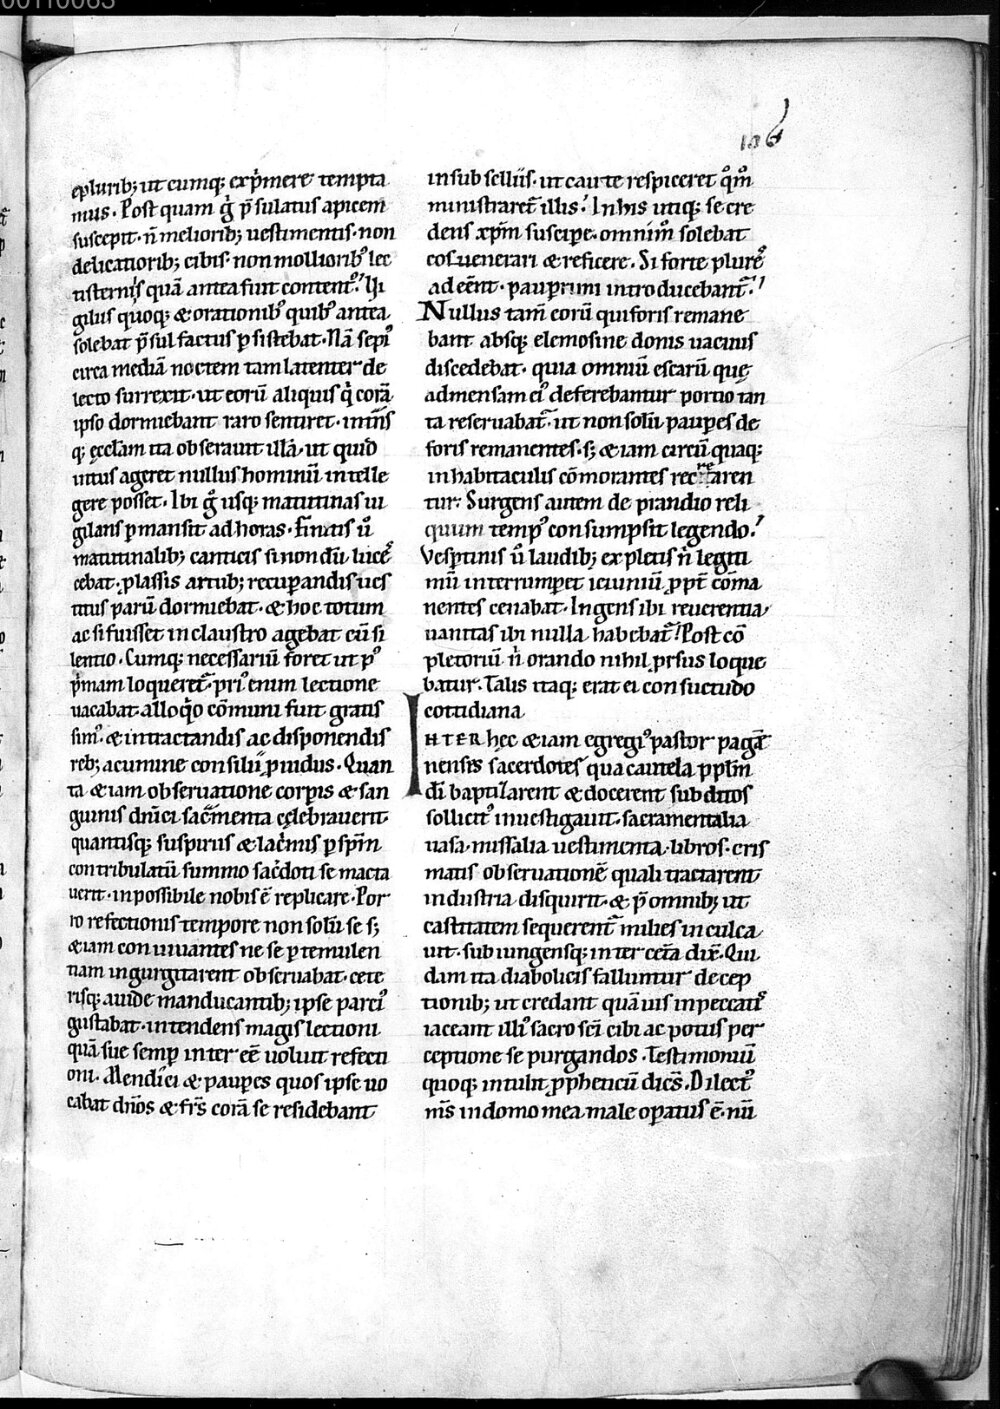 00110063
106
epluribꝫ ut cumqꝫ exp̄mere tempta
mus. Post quam ḡ p̄sulatus apicem
suscepit. n̄ melioribꝫ uestimentis. non
delicatioribꝫ cibis. non molliorib⁊ lec
tisternis quā antea fuit content᷒. Ui
gilus quoqꝫ & orationib᷒ quib᷒ antea
solebat p̄sul factus psistebat. Nā sepi᷒
circa mediā noctem tam latenter de
lecto surrexit. ut eorū aliquis q̇ corā
ipso dormiebant raro sentiret. intrās
qꝫ ęcclam ita obserauit illā. ut quid
intus ageret nullus hominū intelle
gere posset. Ibi ḡ usqꝫ matutinas ui
gilans pmansit ad horas. Finitis ū
matutinalibꝫ canticis si nondū luce
cebat. plassis artubꝫ recupandis ues
titus parū dormiebat. & hoc totum
ac si fuisset in claustro agebat cū si
lentio. Cumqꝫ necessariū foret ut p᷒
p̄mam loqueret᷑. pri᷒ enim lectione
uacabat. alloq̇o cōmuni fuit gratis
sim᷒. & in tractandis ac disponendis
rebꝫ acumine consilii p̄uidus. Quan
ta & iam obseruatione corpis & san
guinis dn̄ici sac̄menta cęlebrauerit.
quantisqꝫ suspiriis & lac̄mis p sp̄m
contribulatū summo sac̄doti se macta
uerit. inpossibile nobis ē replicare. Por
ro refectionis tempore non solū se sꝫ
& iam conuiuantes ne se p temulen
tiam ingurgitarent obseruabat. cete
risqꝫ auide manducantibꝫ ipse parci᷒
gustabat. intendens magis lectioni
quā sue semp inter eē uoluit refecti
oni. Mendici & paupes quos ipse uo
cabat dn̄os & frs̄ corā se residebant
in subselliis. ut caute respiceret q̄m̄
ministraret᷑ illis. In his utiqꝫ se cre
dens xp̄m suscipe. omnim̄ solebat
eos uenerari & reficere. Si forte plures
adeēnt. paupum introducebant᷑.
Nullus tam̄ eorū qui foris remane
bant absqꝫ elemosine donis uacuus
discedebat. quia omniū escarū quę
ad mensam ei᷒ deferebantur portio tan
ta reseruabat᷑. ut non solū paupes de
foris remanentes. sꝫ & iam circū quaqꝫ
in habitaculis cōmorantes recrearen
tur. Surgens autem de prandio reli
quum temp᷒ consumpsit legendo.
Vesptinis ū laudibꝫ expletis n̄ legiti
mū interrumperet ieiuniū ppt̄ cōma
nentes cenabat. Ingens ibi reuerentia
uanitas ibi nulla habebat᷑. Post cō
pletoriū n̄ orando nihil prsus loque
batur. Talis itaqꝫ erat ei consuetudo
cottidiana
INTER hęc & iam egregi᷒ pastor pagē
nensis sacerdotes qua cautela pplm̄
dī baptizarent & docerent subditos
sollicit᷒ inuestigauit. sacramentalia
uasa. missalia uestimenta. libros. cris
matis obseruationē quali tractarent
industria disquirit. & p̄ omnibꝫ ut
castitatem sequerent᷑ milies inculca
uit. subiungensqꝫ inter cet̄a dix̄. Qui
dam ita diabolicis falluntur decep
tionibꝫ ut credant quāuis in peccatis
iaceant illi᷒ sacrosc̄i cibi ac potus per
ceptione se purgandos. Testimoniū
quoqꝫ intulit ppheticū dicēs. Dilect᷒
ms̄ in domo mea male opatus ē. nū